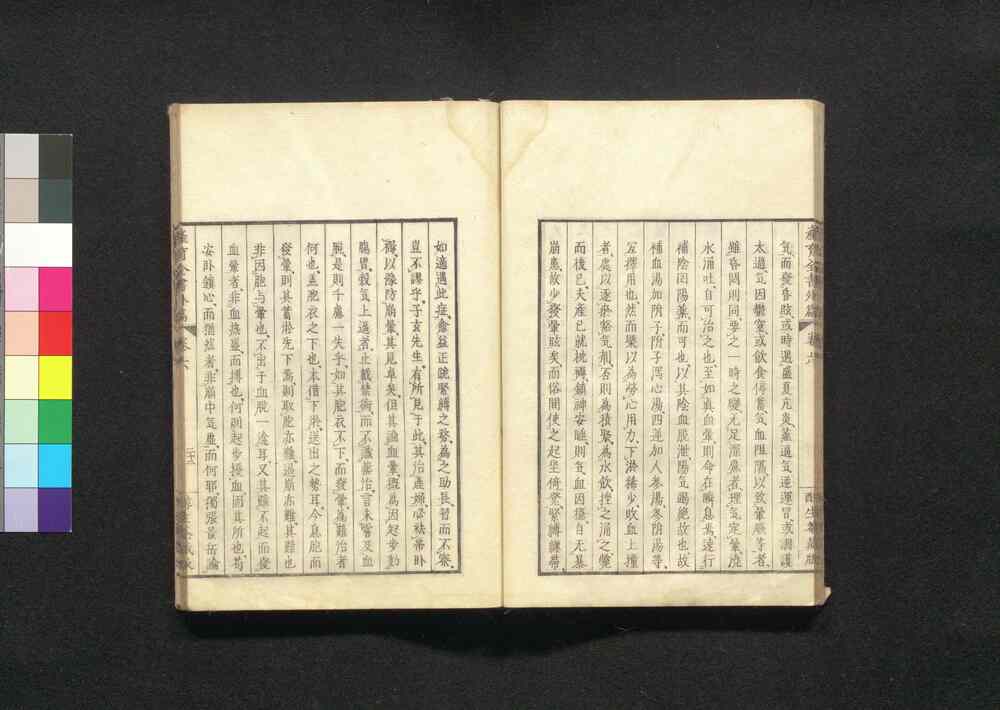 氣而發昏眩或時遇盛夏亢炎蒸過氣逆運冒或潤護
太過氣因鬱窒或飲食停蓄氣血阻隔以致暈厥等者
雖昏悶則同要之一時之變無足深慮者理氣定暈澆
水涌吐自可治之也至如真血暈則命在瞬息焉遠行
補陰固陽藥而可也以其陰血脫泄陽氣竭絕故也故
補血湯如附子附子瀉心湯四逆加人參湯參附湯等
宜擇用也然而槩以為勞心用力下淤稀少吹血上撞
者處以逐瘀豁氣劑否則為積聚為水飲挫之涌之覺
而後已夫產已就枕褥鎮神安睡則氣血因擾自無暴
崩患故少發暈眩矣而俗間使之起坐倚凳緊縛鎌帶
如適遇此症愈益正跪緊縛之務為之助長習而不察
豈不謬乎子玄先生有所見于此其治產婦必祛帶臥
褥以豫防崩暈其見卓矣但其論血暈槩為因起步動
腸胃穀氣上逼者止截禁術而不議藥治言未嘗及血
脫是則千慮一失乎如其胞衣不下而發暈為難治者
何也蓋胞衣之下也本借下淤送出之勢耳今息胞而
發暈則其蓄淤先下焉則取胞亦難遏崩亦難其難也
非因胞与暈也不出于血脫一途耳又其雖不起而發
血暈者非血熱蔓而摶也何則起步擾血固其所也苟
安臥鎮心而猶尫者非崩中氣虛而何耶獨張景岳論
產育全書外篇
卷六